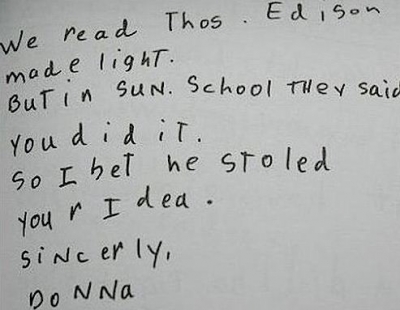 We read Thos. Edison
made light.
But in SUN. School THey said
you did iT.
So I bet he stoled
your Idea.
sincerly,
DoNNa